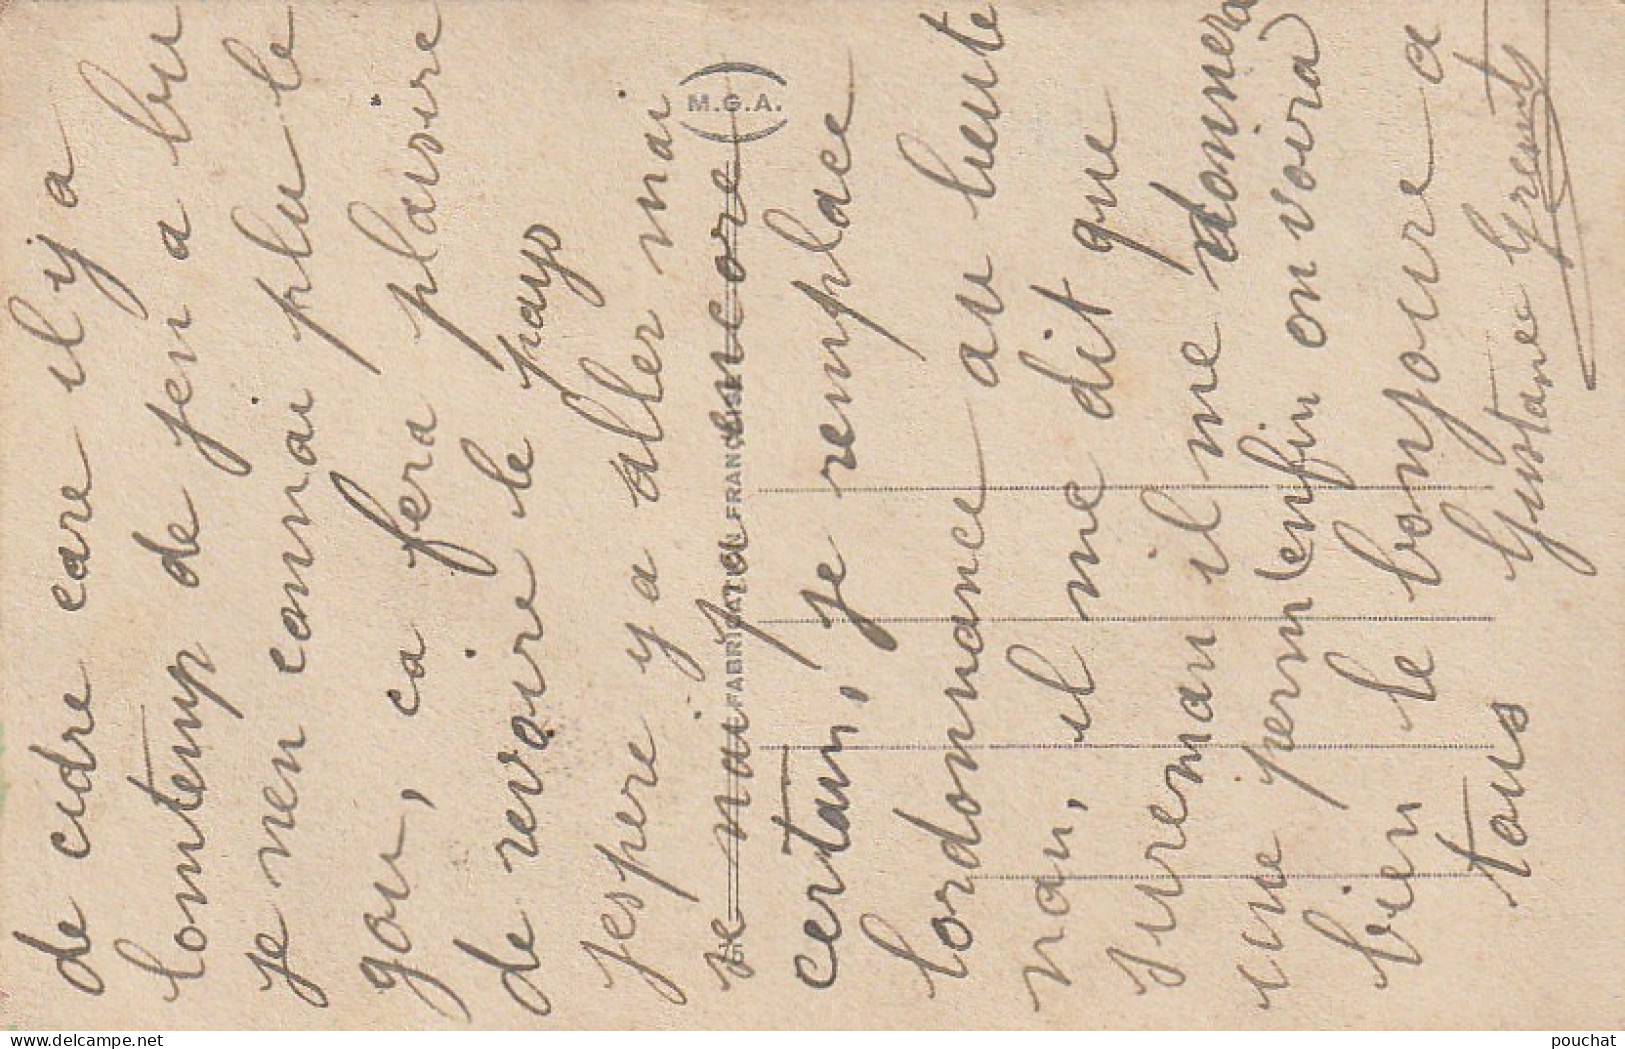 de cidre care il y a
lontemp de jen a bu
je nen connai plu le
gou, ca fera plaisire
de revoire le pays
jespere y a aller mai
se nai pa encore
certain, je remplace
lordonnance au lieute
nan, il me dit que
sureman il me donnera
une perm (enfin on voira)
bien le bonjoure a
tous Gustave
M.G.A.
FABRICATION FRANÇAISE
pouchat